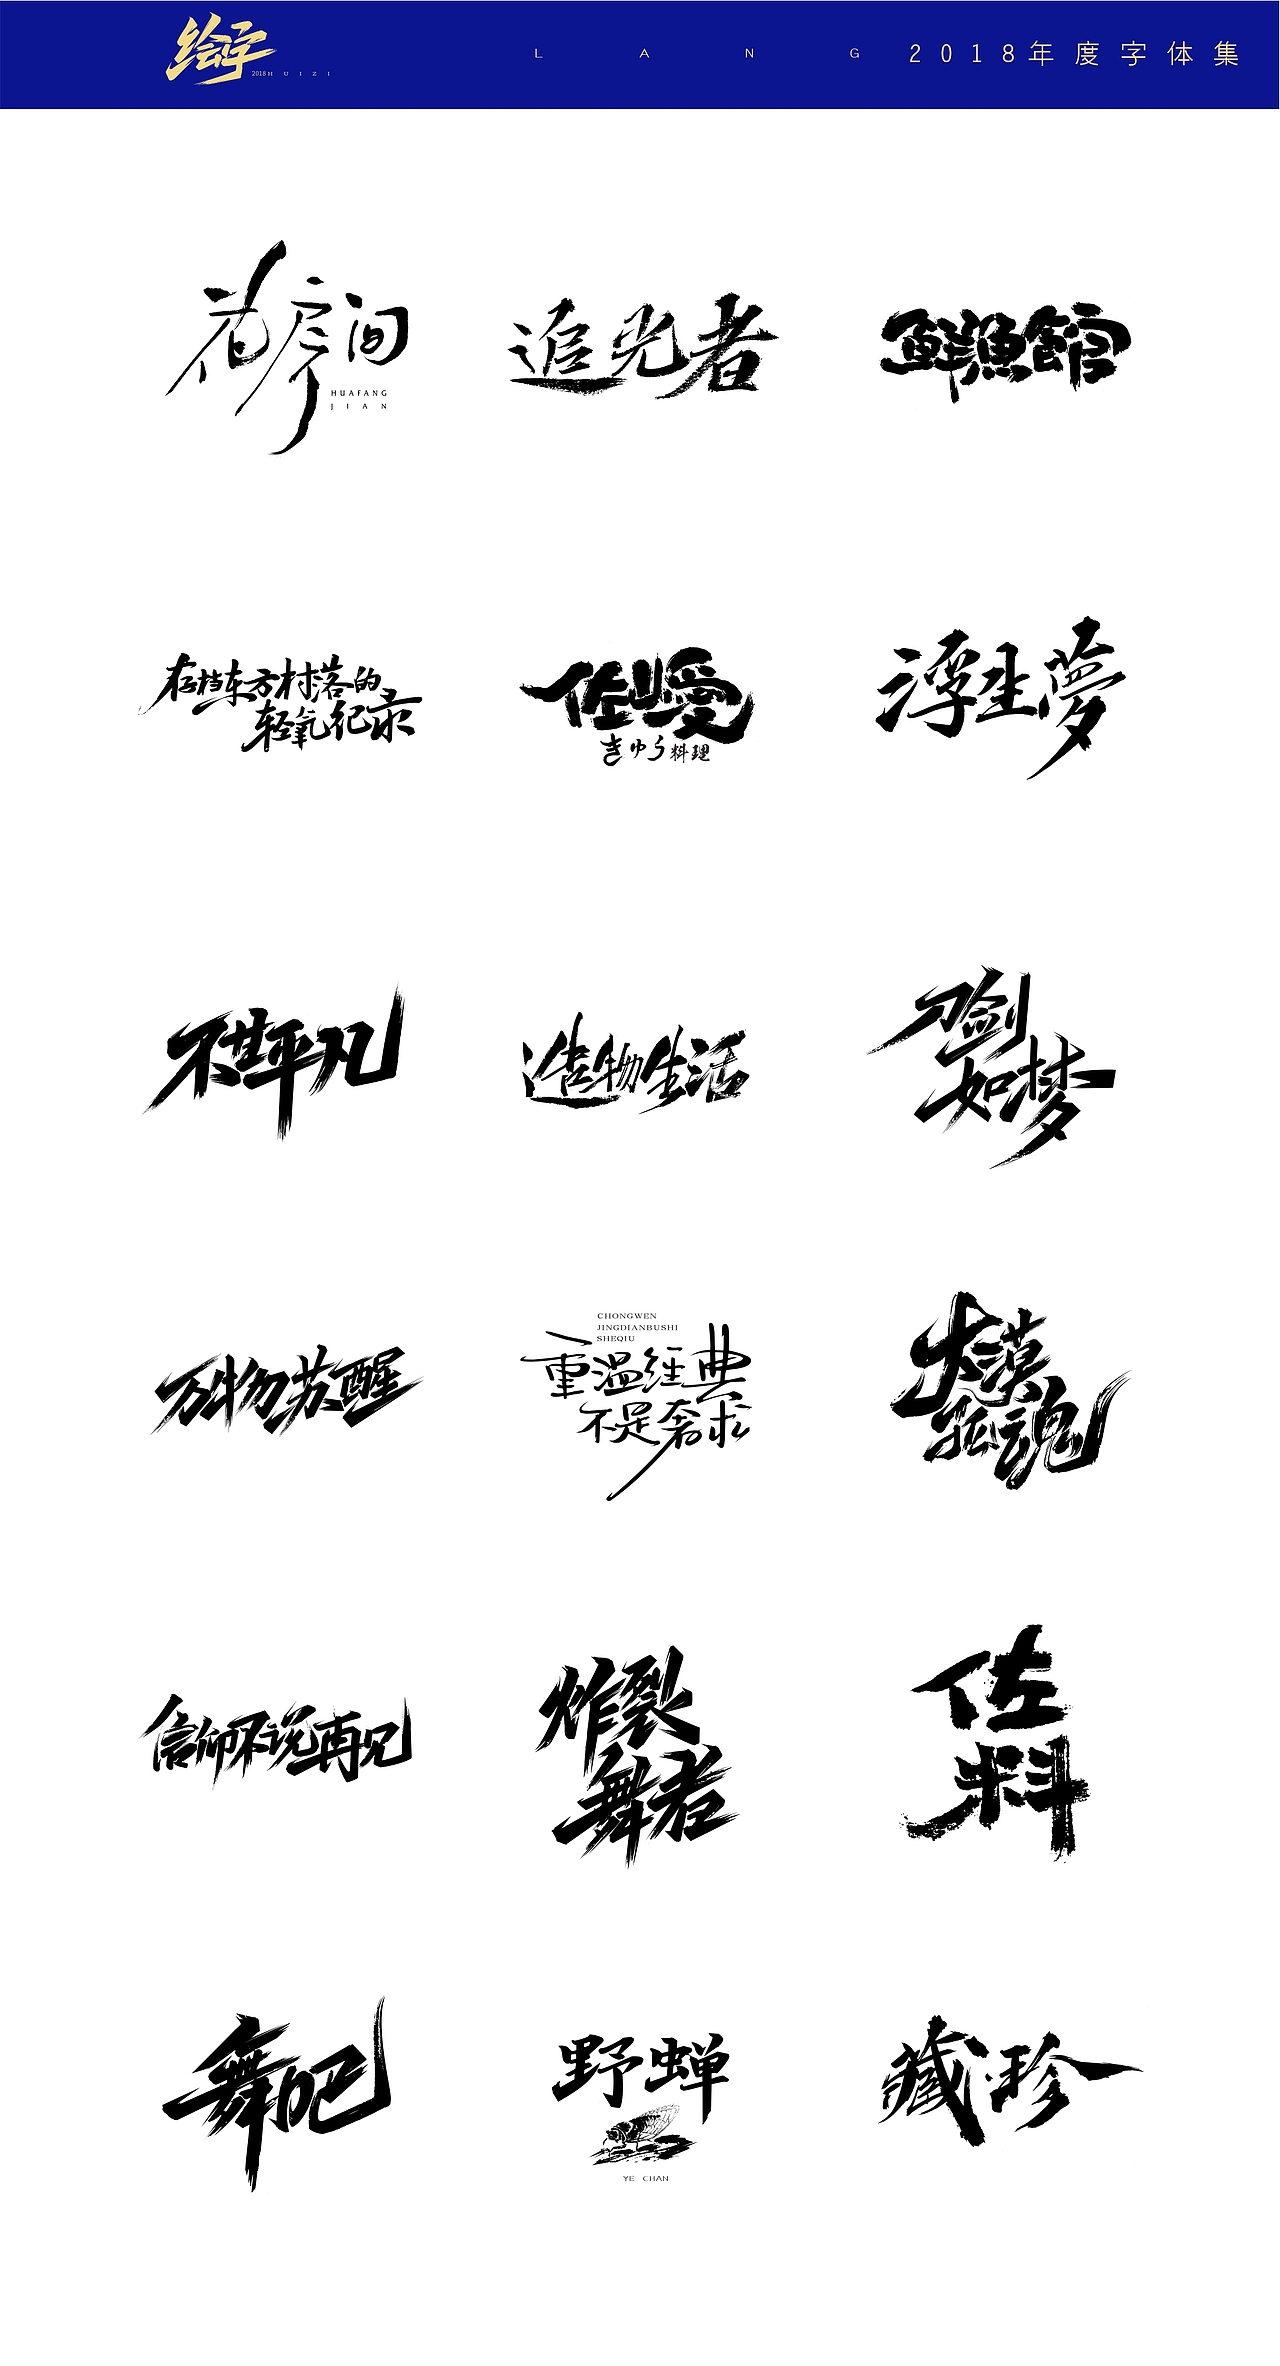 绘字
2018 HUIZI
LANG
2018年度字体集
花房间
HUAFANG
JIAN
追光者
鲜漁館
存档东方村落的
轻氧纪录
佐山愛
きゅう料理
浮生夢
不甚平凡
造物生活
刀剑
如梦
万物苏醒
CHONGWEN
JINGDIANBUSHI
SHEQIU
重温经典
不是奢求
大漠
孤魂
信仰不说再见
炸裂
舞者
佐
料
舞吧
野蝉
YE CHAN
藏珍